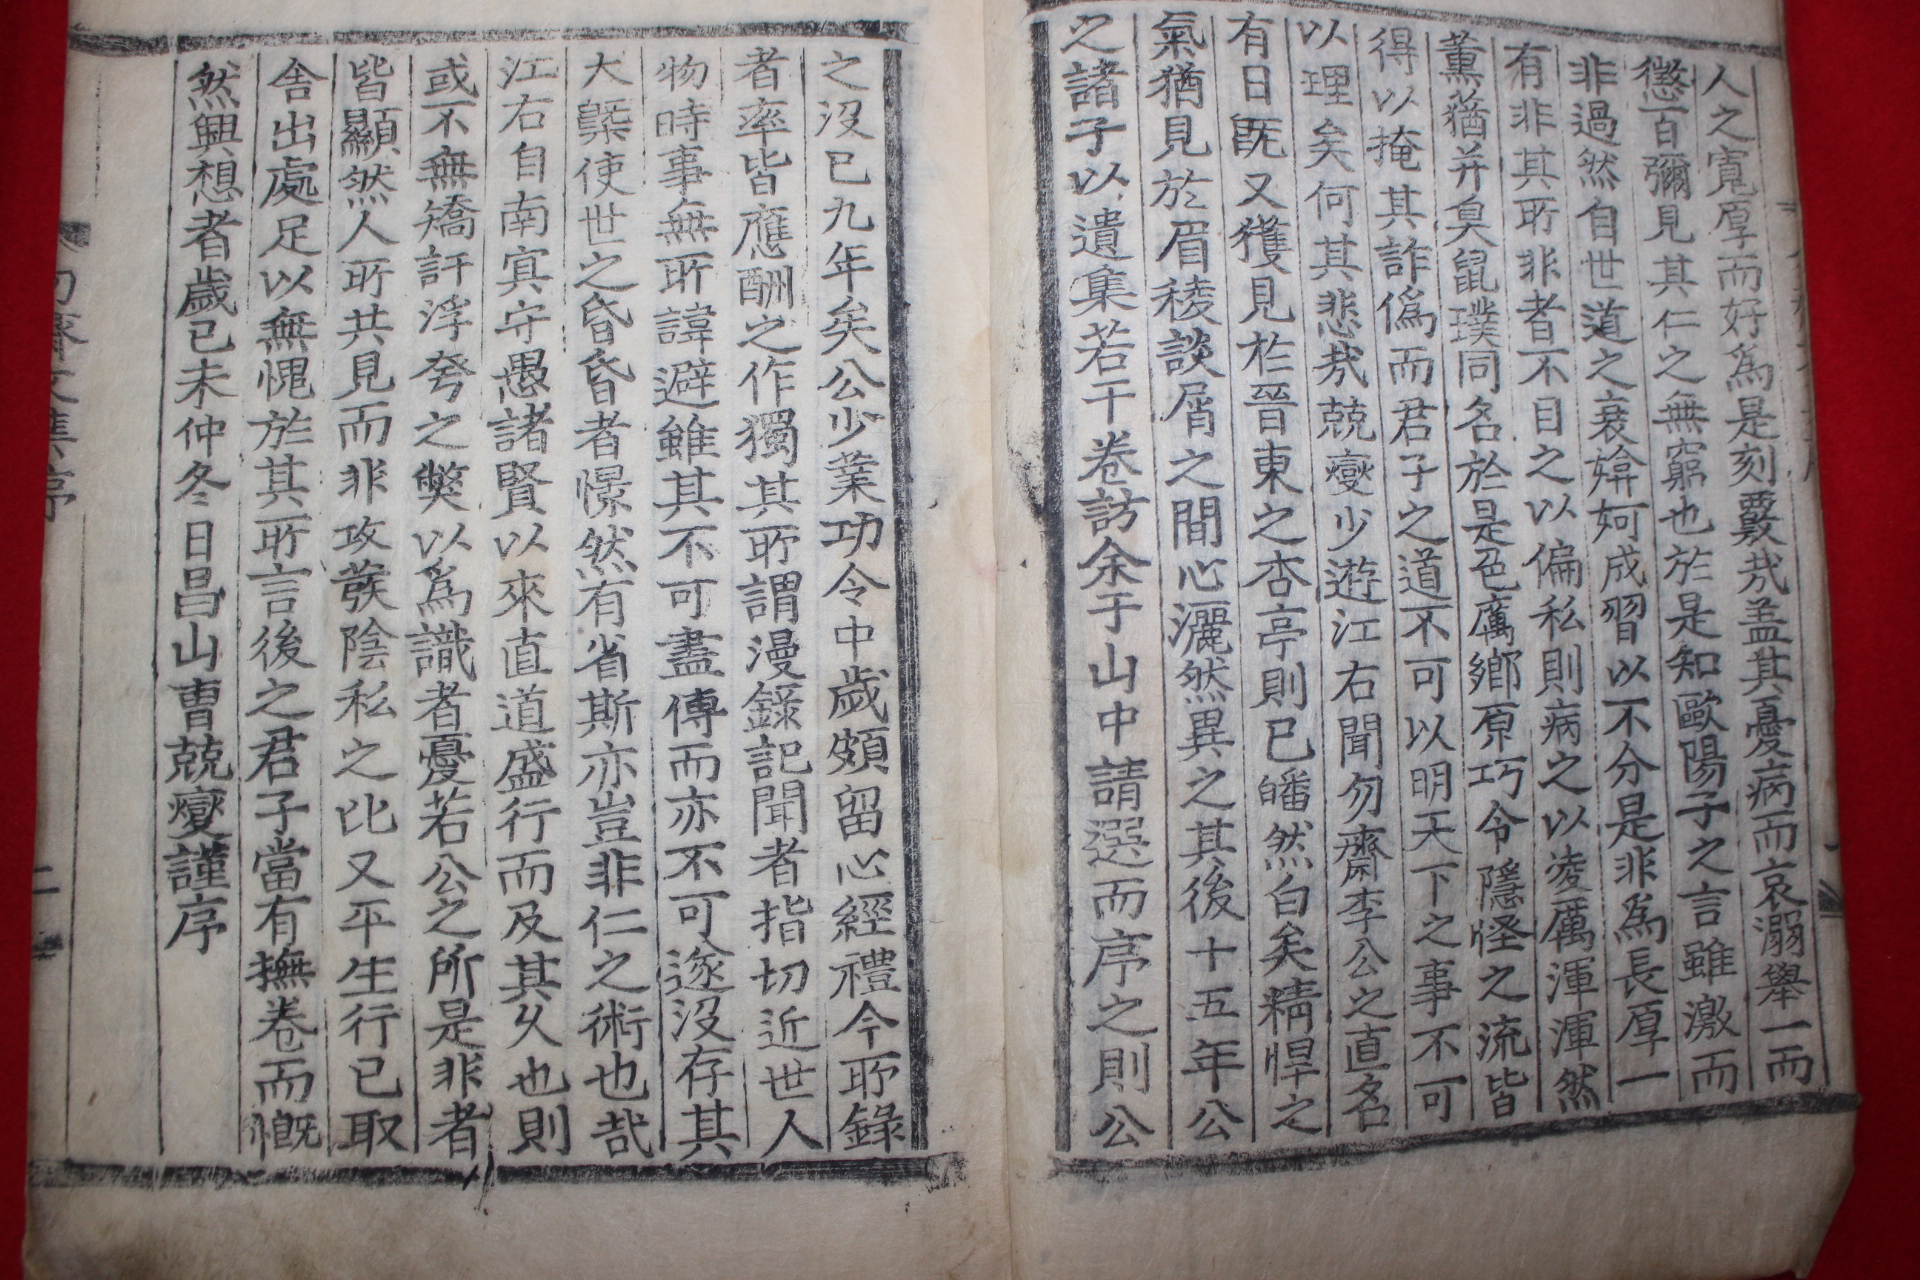 人之寬厚而好爲是刻覈哉盖其憂病而哀溺擧一而
懲百彌見其仁之無窮也於是知歐陽子之言雖激而
非過然自世道之衰媕婀成習以不分是非爲長厚一
有非其所非者不目之以偏私則病之以凌厲渾渾然
薰蕕并臭鼠璞同名於是色厲鄕原巧令隱怪之流皆
得以掩其詐僞而君子之道不可以明天下之事不可
以理矣何其悲哉兢燮少遊江右聞勿齋李公之直名
有日旣又獲見於晉東之杏亭則已皤然白矣精悍之
氣猶見於眉稜談屑之間心灑然異之其後十五年公
之諸子以遺集若干卷訪余于山中請選而序之則公
之沒已九年矣公少業功令中歲頗留心經禮今所錄
者率皆應酬之作獨其所謂漫錄記聞者指切近世人
物時事無所諱避雖其不可盡傳而亦不可遂沒存其
大槩使世之昏昏者憬然有省斯亦豈非仁之術也哉
江右自南冥守愚諸賢以來直道盛行而及其久也則
或不無矯訐浮夸之獘以爲識者憂若公之所是非者
皆顯然人所共見而非攻發陰私之比又平生行已取
舍出處足以無愧於其所言後之君子當有撫卷而慨
然興想者歲已未仲冬日昌山曺兢燮謹序
勿齋文集序
二